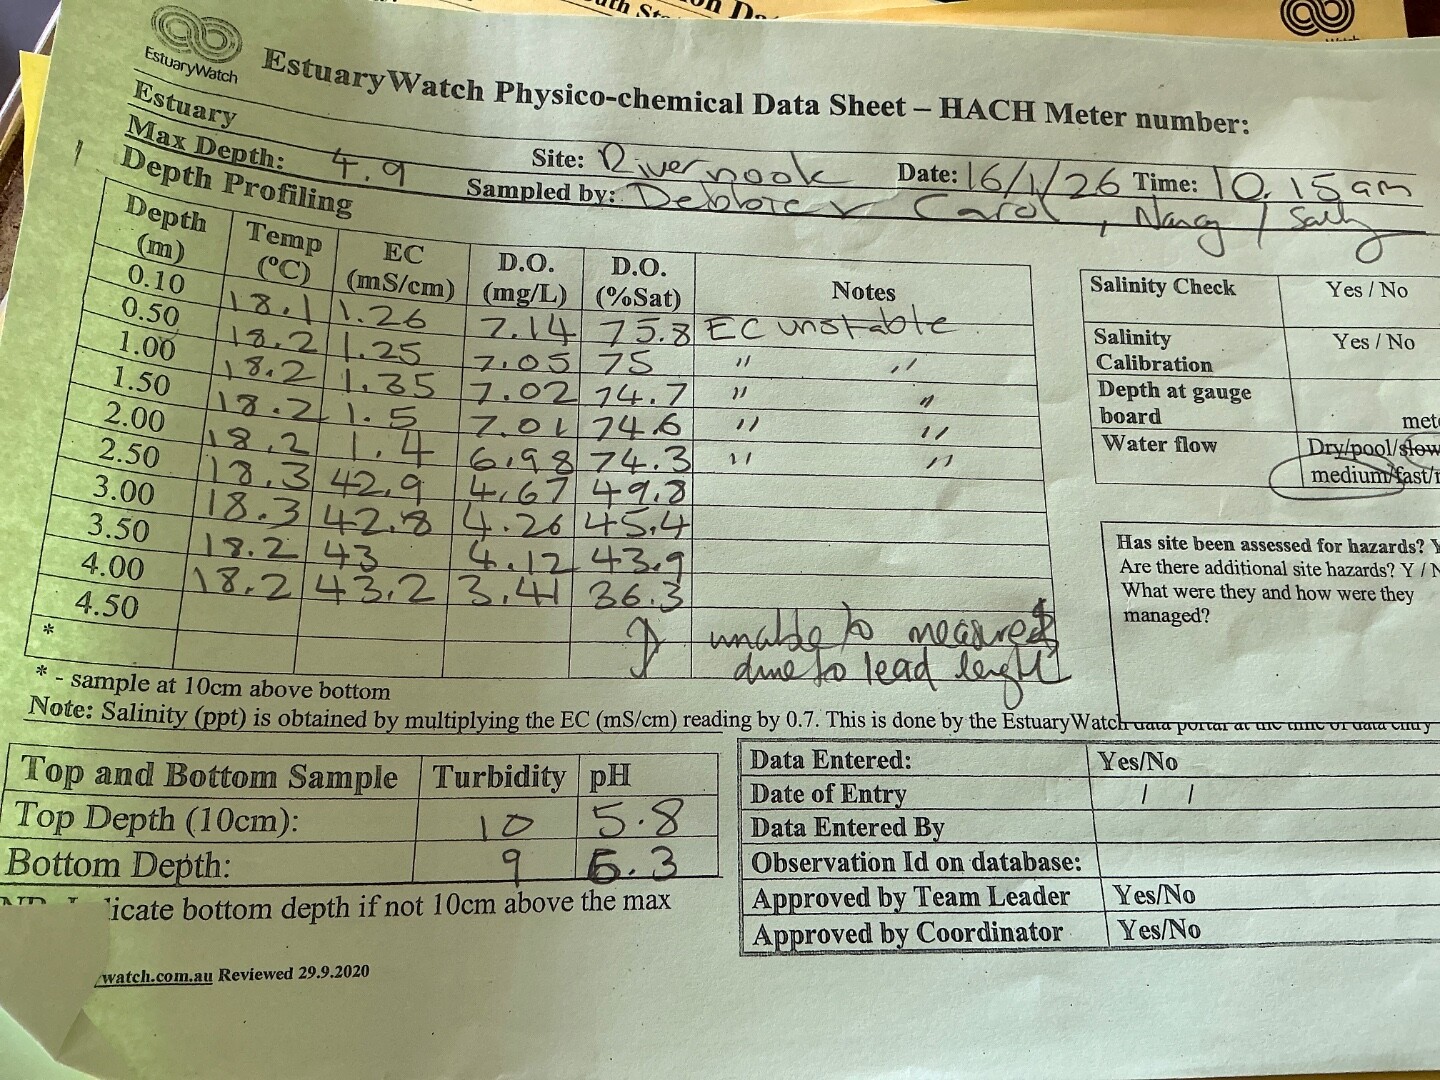 EstuaryWatch
EstuaryWatch Physico-chemical Data Sheet – HACH Meter number:
Estuary
Site: Rivernook Date: 16/1/26 Time: 10.15am
Max Depth: 4.9 Sampled by: Debbie Carol, Nancy / Sally
Depth Profiling
Depth (m) Temp (°C) EC (mS/cm) D.O. (mg/L) D.O. (%Sat) Notes
0.10 18.1 1.26 7.14 75.8 EC unstable
0.50 18.2 1.25 7.05 75 " "
1.00 18.2 1.35 7.02 74.7 " "
1.50 18.2 1.5 7.01 74.6 " "
2.00 18.2 1.4 6.98 74.3 " "
2.50 18.3 42.9 4.67 49.8
3.00 18.3 42.8 4.26 45.4
3.50 18.2 43 4.12 43.9
4.00 18.2 43.2 3.41 36.3
4.50 unable to measure
* due to lead lenght
* - sample at 10cm above bottom
Note: Salinity (ppt) is obtained by multiplying the EC (mS/cm) reading by 0.7. This is done by the EstuaryWatch data portal at the time of data entry
Salinity Check Yes / No
Salinity Calibration Yes / No
Depth at gauge board
Water flow Dry/pool/slow
medium/fast/
Has site been assessed for hazards?
Are there additional site hazards? Y /
What were they and how were they
managed?
Top and Bottom Sample Turbidity pH
Top Depth (10cm): 10 5.8
Bottom Depth: 9 6.3
licate bottom depth if not 10cm above the max
Data Entered: Yes/No
Date of Entry / /
Data Entered By
Observation Id on database:
Approved by Team Leader Yes/No
Approved by Coordinator Yes/No
watch.com.au Reviewed 29.9.2020